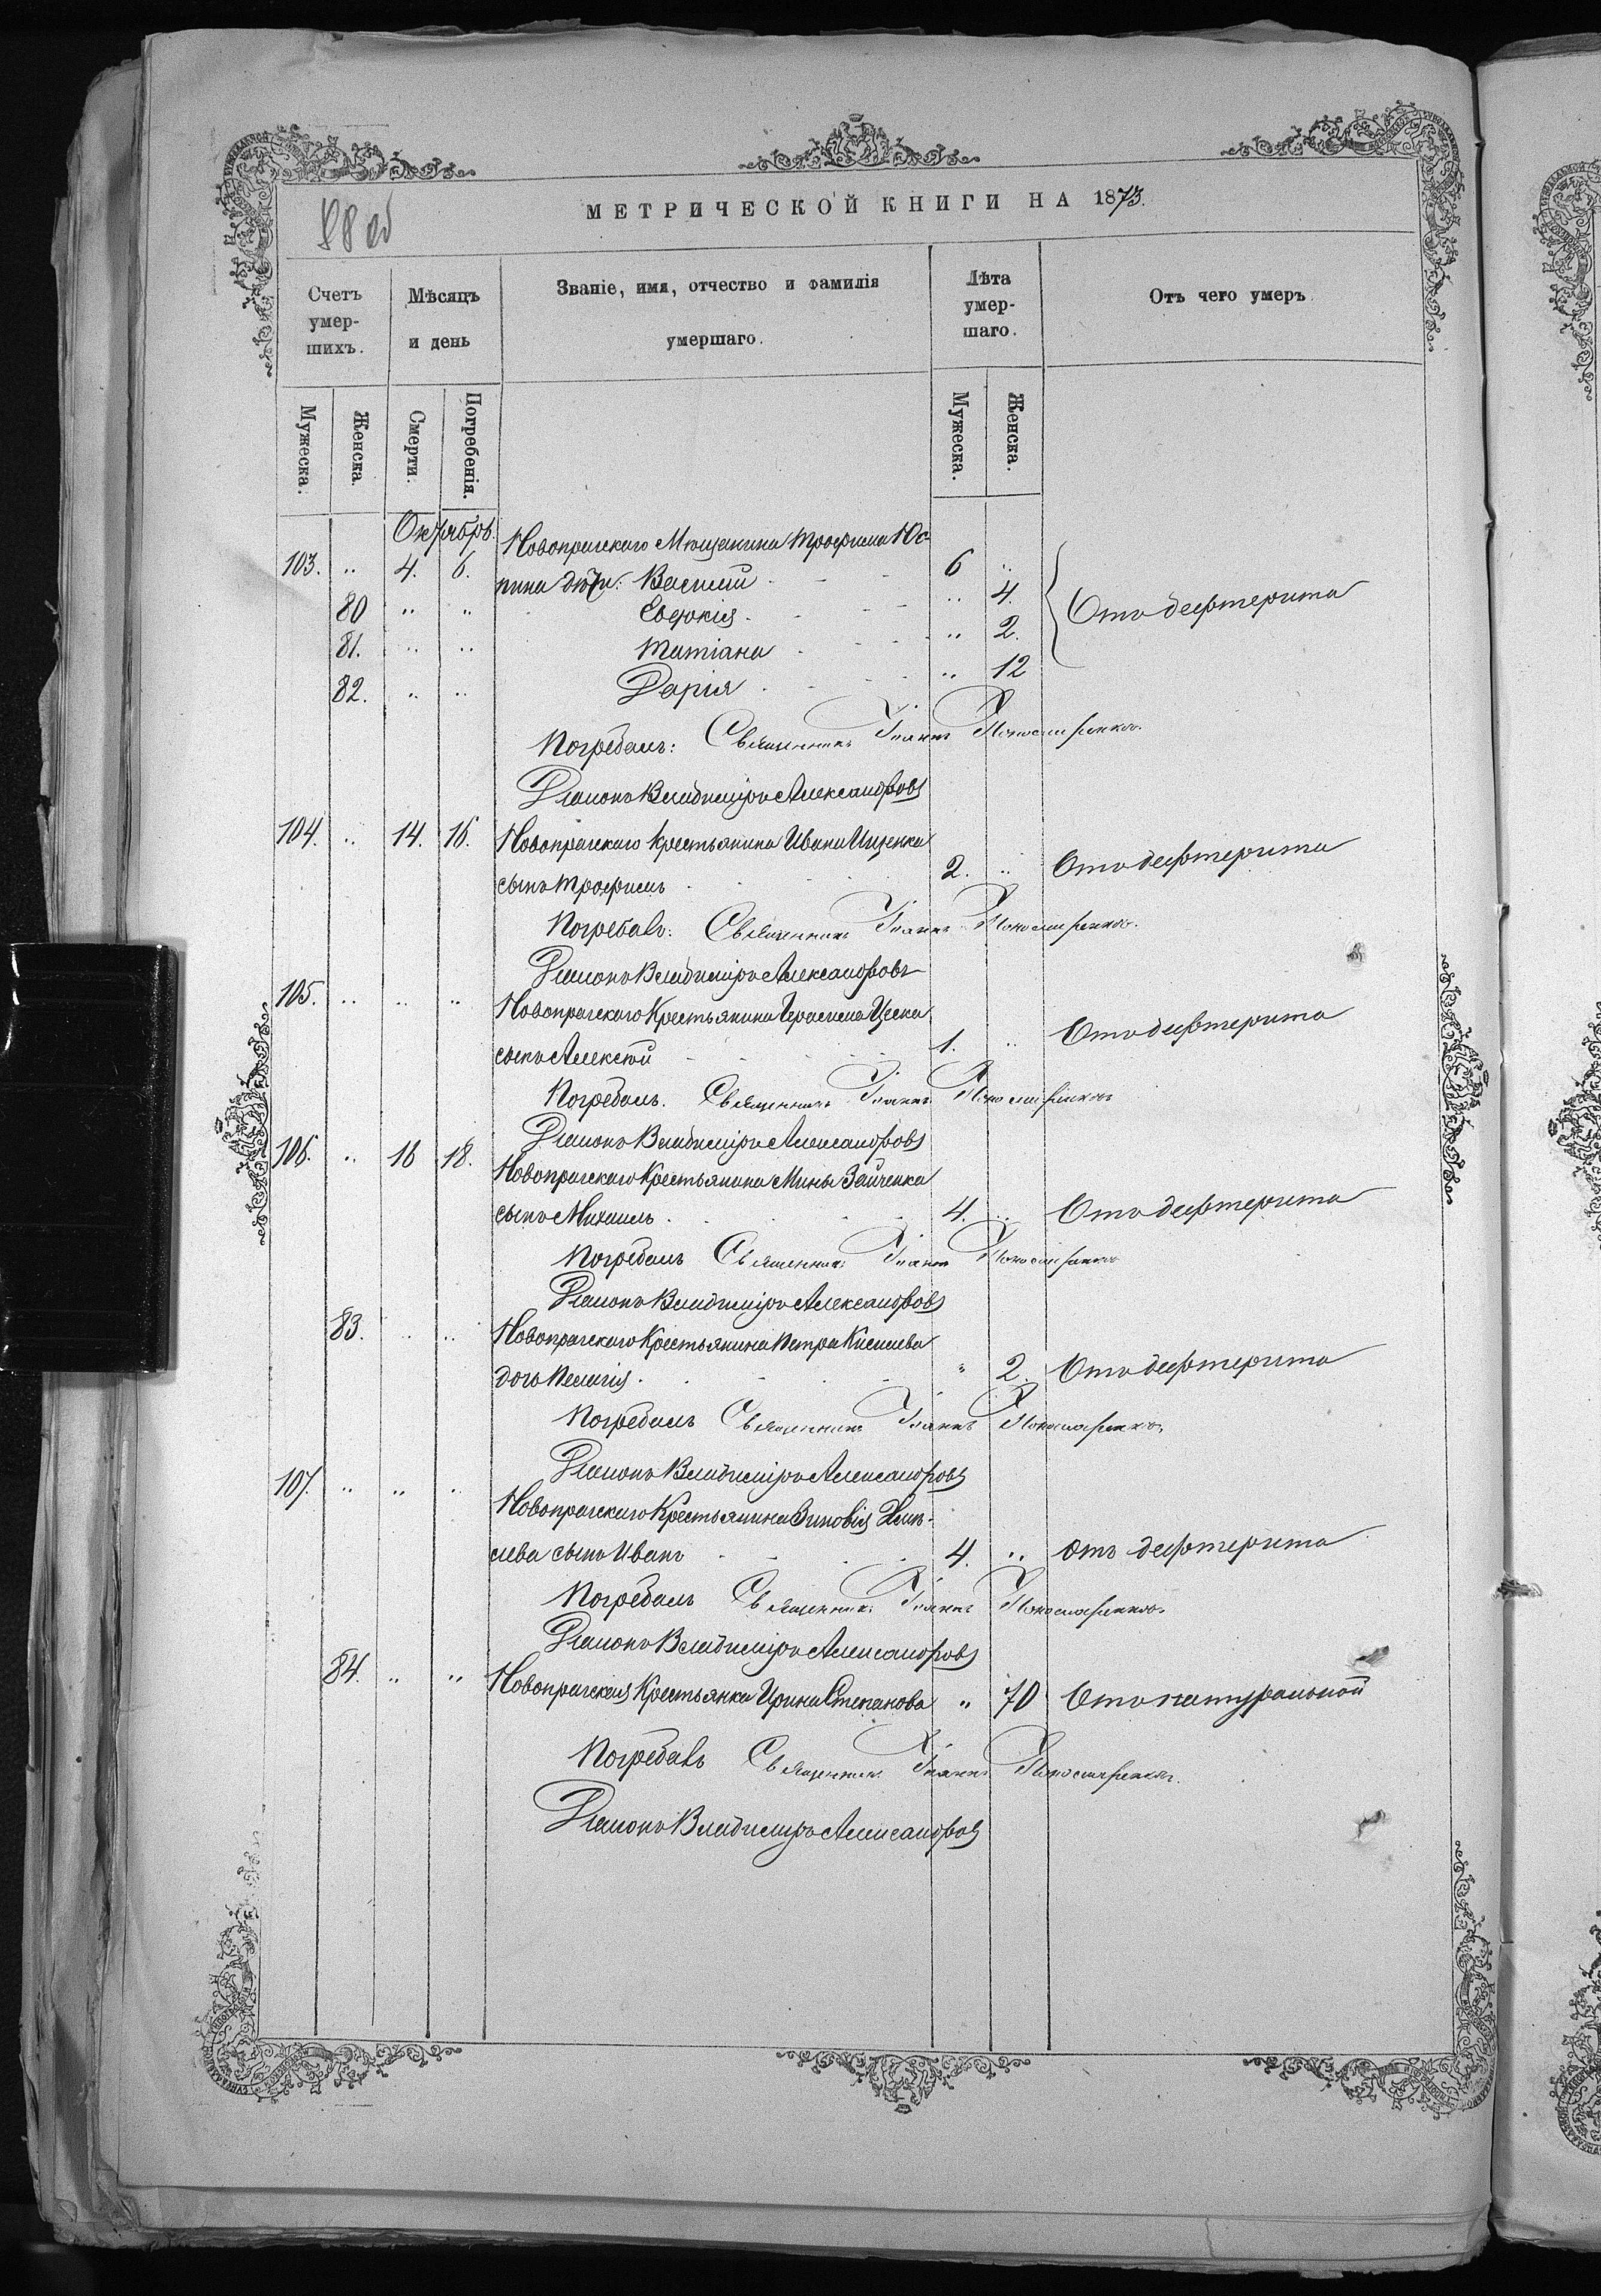 88 об
МЕТРИЧЕСКОЙ КНИГИ НА 1873.
Счетъ умер- шихъ.
Мѣсяцъ и день
Званіе, имя, отчество и фамилія умершаго.
Лѣта умер- шаго.
Отъ чего умеръ.
Мужеска. Женска. Смерти. Погребенія. Мужеска. Женска.
Октябрь.
Новопрагскаго Мѣщанина Трофима Юс-
103. " 4. 6. пина дѣти: Василій 6 "
80 " " Евдокія " 4. Отъ дефтерита
81. " " Татіана " 2.
82. " " Дарія " 12
Погребалъ: Священникъ Іоаннъ
Діаконъ Владиміръ Александровъ
104. " 14. 16. Новопрагскаго Крестьянина Ивана Ищенка
сынъ Трофимъ 2. " Отъ дефтерита
Погребалъ: Священникъ Іоаннъ
Діаконъ Владиміръ Александровъ
105. " " " Новопрагскаго Крестьянина Герасима
сынъ Алексѣй 1. " Отъ дефтерита
Погребалъ. Священникъ Іоаннъ
Діаконъ Владиміръ Александровъ
106. " 16 18. Новопрагскаго Крестьянина Мины Зайченка
сынъ Михаилъ 4. " Отъ дефтерита
Погребалъ Священникъ Іоаннъ
Діаконъ Владиміръ Александровъ
83. " " Новопрагскаго Крестьянина Петра Киселева
дочь Пелагія " 2. Отъ дефтерита
Погребалъ Священникъ Іоаннъ
Діаконъ Владиміръ Александровъ
107. " " " Новопрагскаго Крестьянина Зиновія
сынъ Иванъ 4. " отъ дефтерита
Погребалъ Священникъ Іоаннъ
Діаконъ Владиміръ Александровъ
84. " " Новопрагская Крестьянка Ирина Степанова " 70 Отъ натуральной
Погребалъ Священникъ Іоаннъ
Діаконъ Владиміръ Александровъ